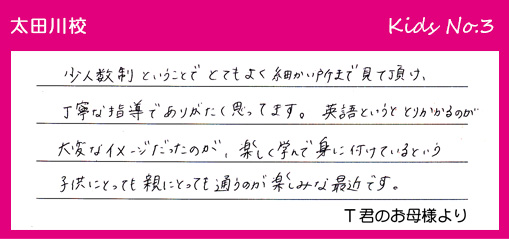 太田川校
Kids No.3
少人数制ということでとてもよく細かい所まで見て頂け、
丁寧な指導でありがたく思ってます。英語というととりかかるのが
大変なイメージだったのが、楽しく学んで身に付けているという
子供にとっても親にとっても通うのが楽しみな最近です。
T君のお母様より